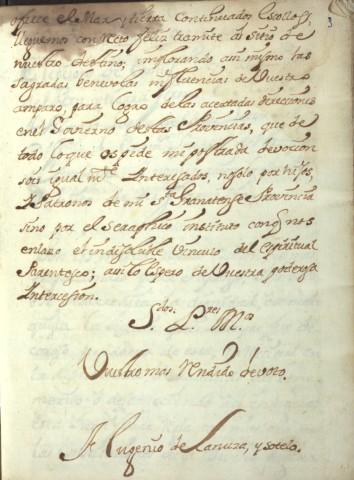 3
ofrece el Mar, y tierra continuados escollos,
lleguemos con Neto feliz tramite al sitio de
nuestro destino; implorando aun mismo las
sagradas benevolas influencias de Vuestro
amparo, para logro de las acertadas direcciones
en el Govierno de estas Provincias, que de
todo lo que os pide mi postrada devocion
sois igual mte. Interesados, no solo por hijos,
y Patronos de mi sta. Granatense Provincia
sino por el Seraphico instituto con q nos
enlazo el indisoluble vinculo del espiritual
Parentesco; asi lo espero de Vuestra poderosa
Intercesion.
Sdos. Pres. Mos
Vuestro mas rendido devoto.
Fr. Eugenio de Lanuza, y sotelo.